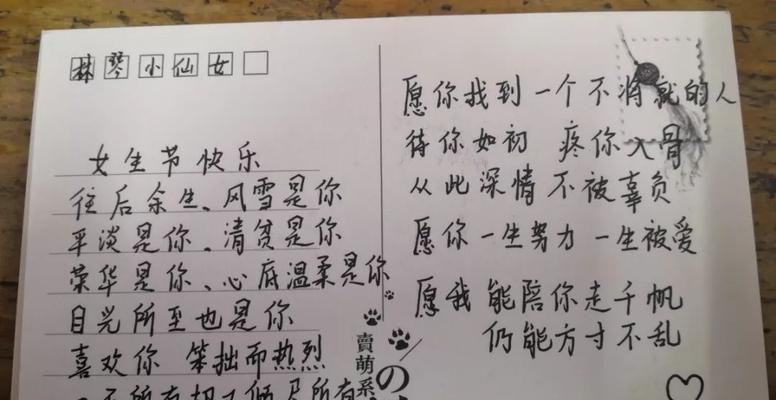 林琴小仙女
女生节快乐
往后余生、风雪是你
平淡是你、清贫是你
荣华是你、心底温柔是你
目光所至也是你
喜欢你 笨拙而热烈
愿你找到一个不将就的人
待你如初 疼你入骨
从此深情不被辜负
愿你一生努力 一生被爱
愿我 能陪你走千帆
仍能方寸不乱
賣萌系
の